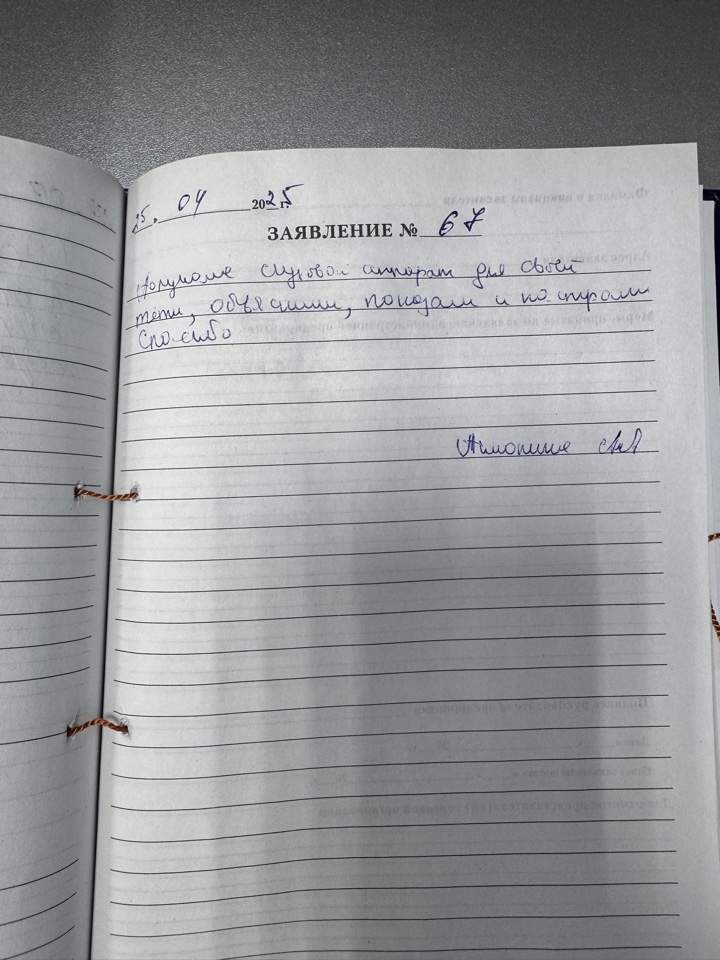 25. 04 2025 г.
ЗАЯВЛЕНИЕ № 67
Получала слуховой аппарат для своей
тёти, объяснили, показали и настроили
Спасибо